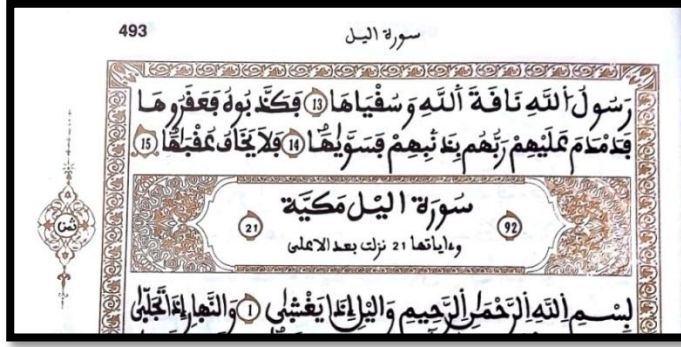 493
سورة اليل
رَسُولُ اُ۬للَّهِ نَاقَةَ اَ۬للَّهِ وَسُقْيَاهَا 13 فَكَذَّبُوهُ فَعَقَرُوهَا
فَدَمْدَمَ عَلَيْهِمْ رَبُّهُم بِذَنۢبِهِمْ فَسَوَّيٰهَا 14 فَلَا يَخَافُ عُقْبَٰهَا 15
سُورَة اليْل مَكيَّة
92
21
وءاياتها 21 نزلت بعد الاعلى
ثمن
بِسْمِ اِ۬للَّهِ اِ۬لرَّحْمَٰنِ اِ۬لرَّحِيمِ وَاليْلِ إِذَا يَغْشَىٰ 1 وَالنَّهارِ إِذَا تَجَلَّىٰ